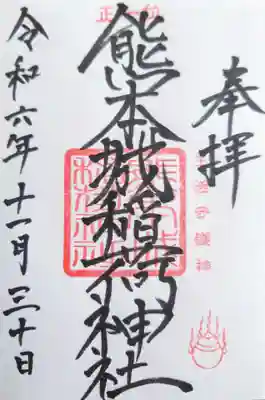 奉拝
正一位
熊本城稲荷神社
令和六年十一月三十日